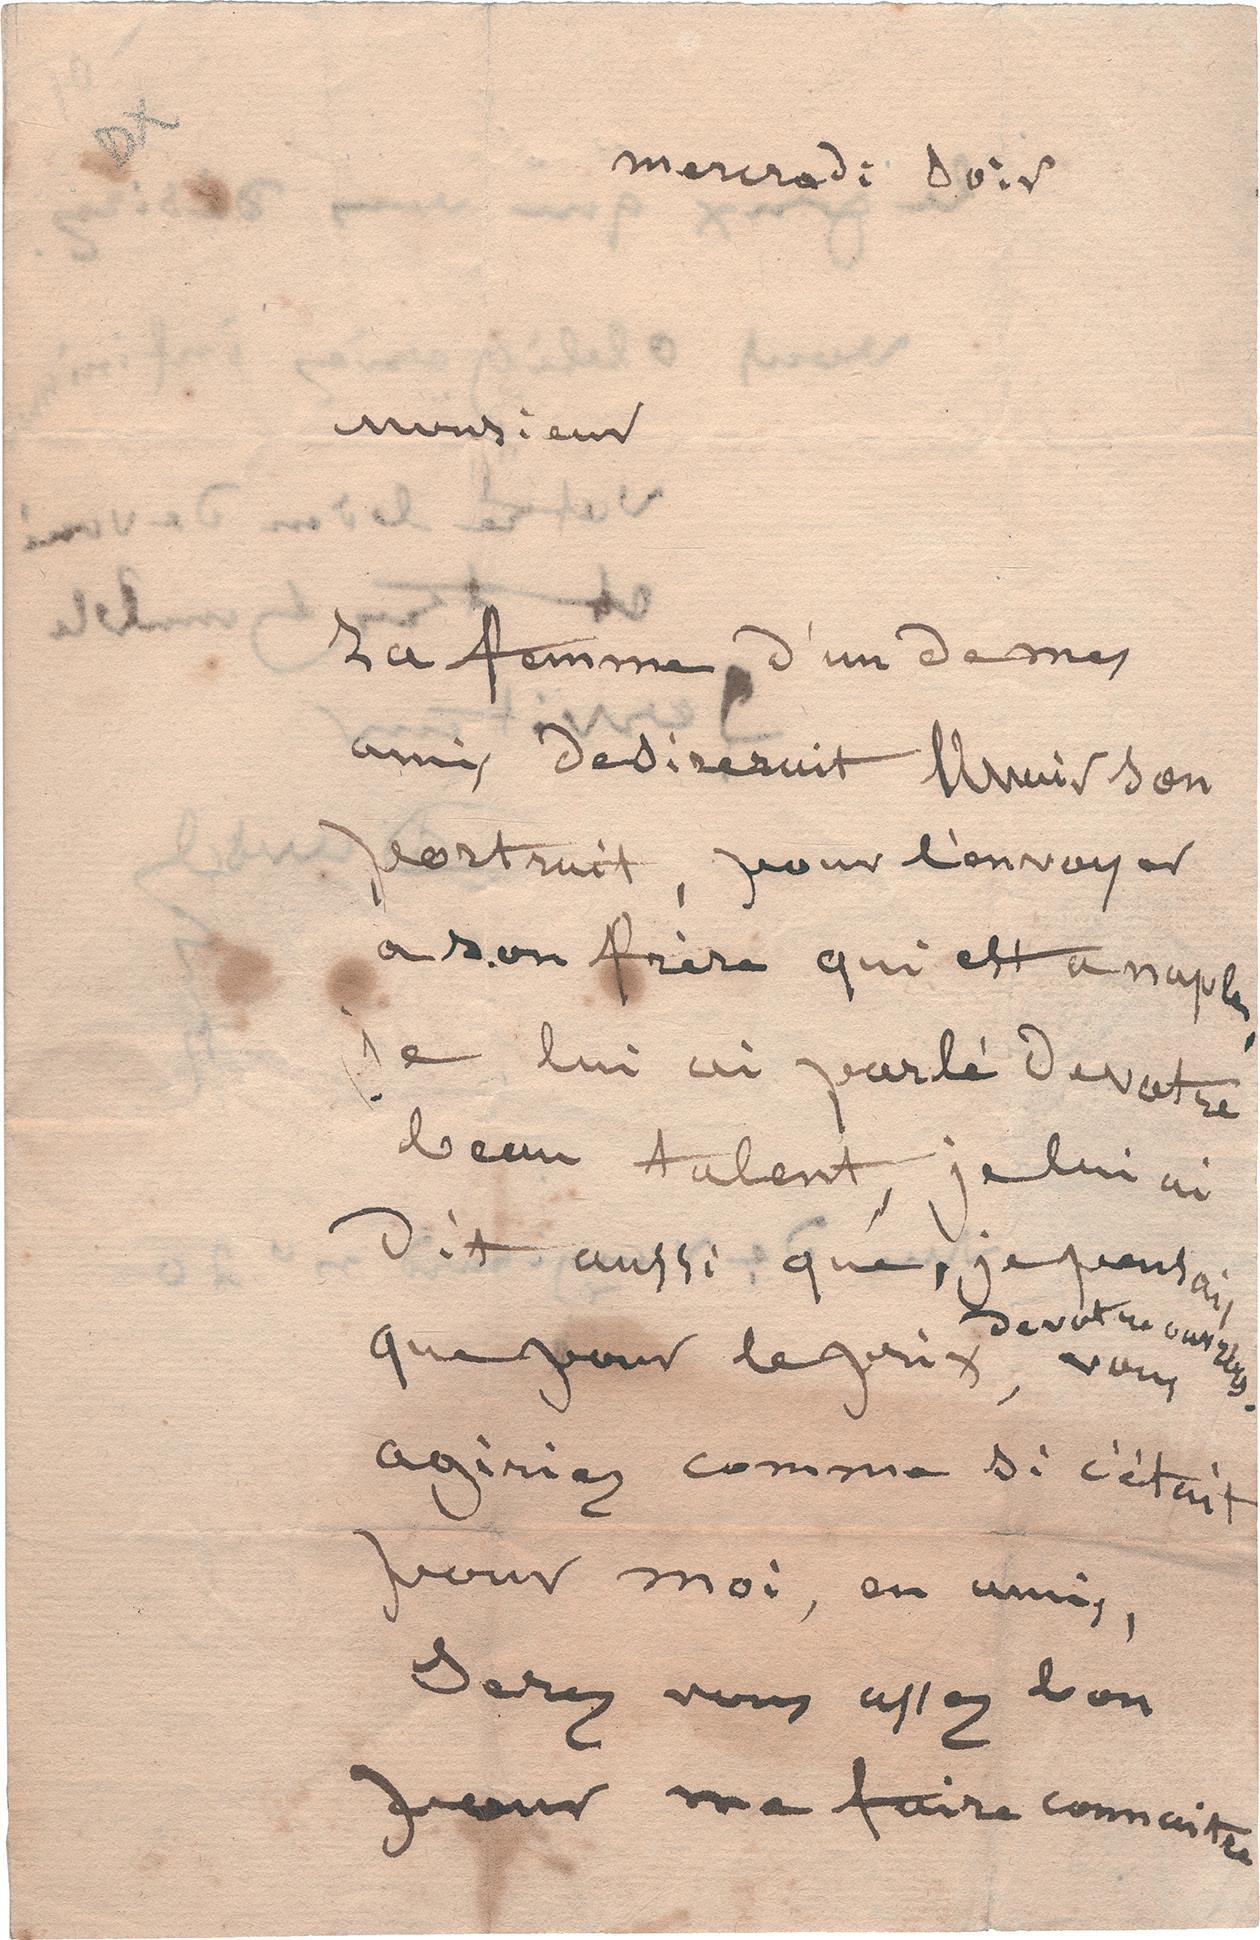 mercredi soir
Monsieur
La femme d'un de mes
amis desirerait avoir son
portrait, pour l'envoyer
a son frère qui est a naples,
je lui ai parlé de votre
beau talent, je lui ai
dit aussi que, je pensais
que pour le prix, de votre ouvrage. vous
agiriez comme si c'était
pour moi, en amis,
Serez vous assez bon
pour me faire connaitre